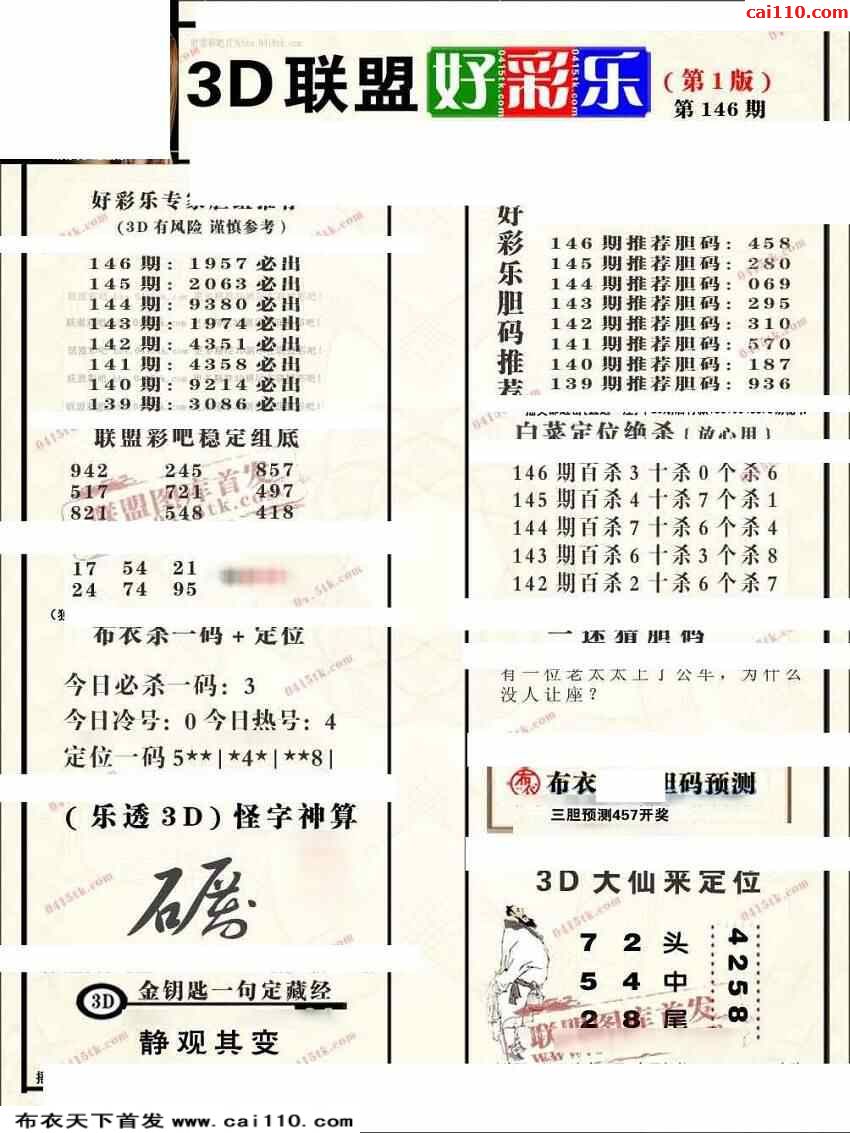 cai110.com
3D联盟好彩乐
(第1版)
第146期
(3D有风险 谨慎参考)
146期: 1957必出
145期: 2063必出
144期: 9380必出
143期: 1974必出
142期: 4351必出
141期: 4358必出
140期: 9214必出
139期: 3086必出
联盟彩吧稳定组底
942 245 857
517 721 497
821 548 418
17 54 21
24 74 95
布衣杀一码+定位
今日必杀一码: 3
今日冷号: 0 今日热号: 4
定位一码5**|*4*|**8|
(乐透3D)怪字神算
3D 金钥匙一句定藏经
静观其变
好彩乐胆码推荐
146期推荐胆码: 458
145期推荐胆码: 280
144期推荐胆码: 069
143期推荐胆码: 295
142期推荐胆码: 310
141期推荐胆码: 570
140期推荐胆码: 187
139期推荐胆码: 936
白菜定位绝杀[放心用]
146期百杀3十杀0个杀6
145期百杀4十杀7个杀1
144期百杀7十杀6个杀4
143期百杀6十杀3个杀8
142期百杀2十杀6个杀7
一迷猜胆码
有一位老太太上了公车,为什么
没人让座?
布衣 布衣 胆码预测
三胆预测457开奖
3D大仙来定位
7 2 头
5 4 中
2 8 尾
4258
联盟图库首发
0415tk.com
布衣天下首发 www.cai110.com